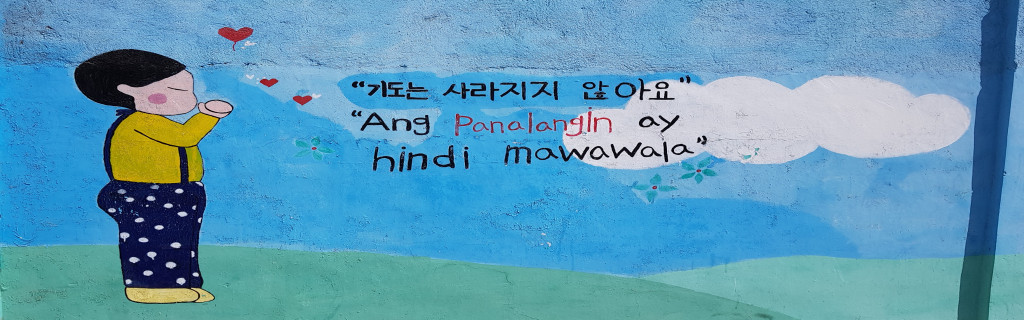 "기도는 사라지지 않아요"
"Ang PanalangIn ay
hindi mawawala"